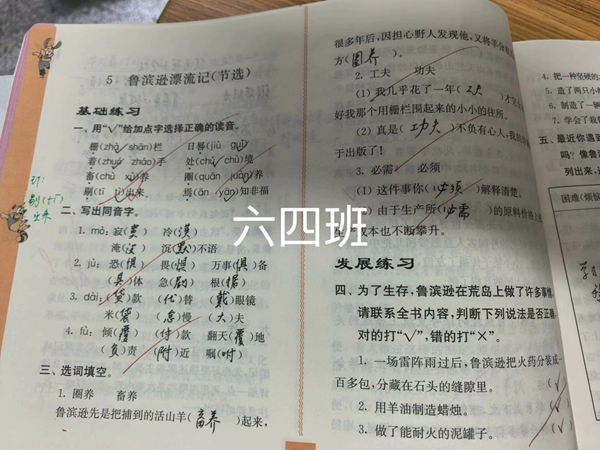 5 鲁滨逊漂流记(节选)
基础练习
一、用“√”给加点字选择正确的读音。
栅(zhà shān)栏 日晷(jiǔ guǐ)
着(zhuó zháo)手 处(chǔ chù)境
畜(chù xù)养 圈(quān juàn)养
剔(tī tì)出来 焉(ān yān)知非福
班:
剔(tī)
出来
二、写出同音字。
1. mò:寂(寞) 冷(漠)
淹(没) 沉(默)不语
2. jù:恐(惧) 畏(惧) 万事(俱)备
(具)体 急(剧) 根(据)
3. dài:(贷)款 (代)替 (戴)眼镜
米(袋) (怠)慢 (大)夫
4. fù:倾(覆) (付)款 翻天(覆)地
(负)责 (附)近 嘱(咐)
三、选词填空。
1. 圈养 畜养
鲁滨逊先是把捕到的活山羊(畜养)起来,
很多年后,因担心野人发现他,又将羊分散
方(圈养)。
2. 工夫 功夫
(1)我几乎花了一年(工夫)才完
好我那个用栅栏围起来的小小的住所。
(2)真是(功夫)不负有心人,我的
于出版了!
3. 必需 必须
(1)这件事你(必须)解释清楚。
(2)由于生产所(必需)的原料价格上
生产成本也不断攀升。
发展练习
四、为了生存,鲁滨逊在荒岛上做了许多事情
请联系全书内容,判断下列说法是否正确
对的打“√”,错的打“×”。
1. 一场雷阵雨过后,鲁滨逊把火药分装成一
百多包,分藏在石头的缝隙里。(√)
2. 用羊油制造蜡烛。(√)
3. 做了能耐火的泥罐子。(√)
4. 把一种坚硬的
5. 造了两只小
6. 制造了一辆
7. 学会了
五、最近你遇到
吗?像鲁
列出来,
困难(烦恼)
六四班